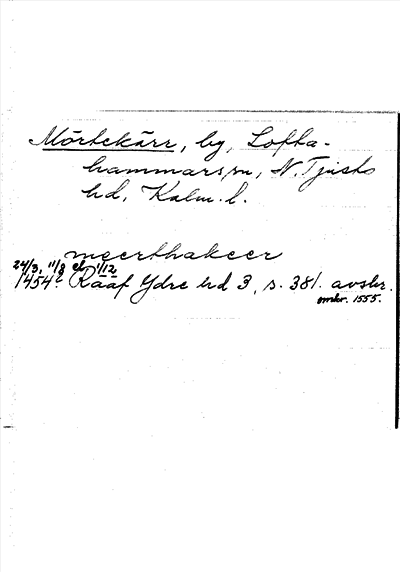 Mörtekärr, by, Lofta-
hammars sn, N. Tjusts
hd, Kalm. l.
meerthakeer
24/3, 11/8 el. 1/12
1454? Rääf Ydre hd 3, s. 381. avskr.
omkr. 1555.